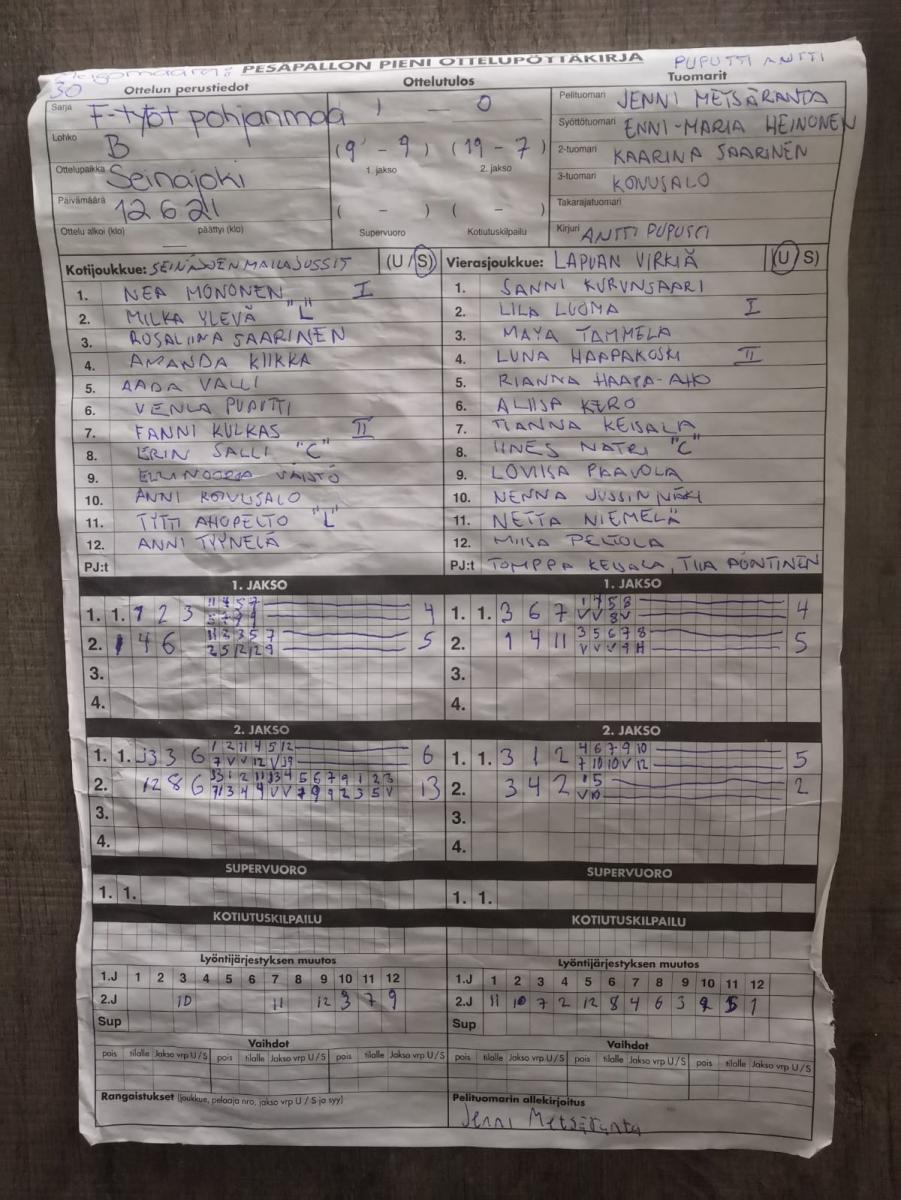 PESÄPALLON PIENI OTTELUPÖYTÄKIRJA
PUPUTTI ANTTI
30
Ottelun perustiedot
Ottelutulos
Tuomarit
Sarja F-tytöt pohjanmaa
1 — 0
Pelituomari JENNI METSÄRANTA
Lohko B
Syöttötuomari ENNI-MARIA HEINONEN
(9 - 9) (19 - 7)
1. jakso 2. jakso
2-tuomari KAARINA SAARINEN
Ottelupaikka Seinäjoki
3-tuomari KOIVUSALO
Päivämäärä 12 6 21
( - ) ( - )
Takarajatuomari
Ottelu alkoi (klo) — päättyi (klo)
Supervuoro Kotiutuskilpailu
Kirjuri ANTTI PUPUTTI
Kotijoukkue: SEINÄJOEN MAILAJUSSIT (U/S)
1. NEA MONONEN I
2. MILKA YLEVÄ "L"
3. ROSALIINA SAARINEN
4. AMANDA KIIKKA
5. AADA VALLI
6. VENLA PUPUTTI
7. FANNI KULKAS II
8. ERIN SALLI "C"
9. ELLINOORA VÄISTÖ
10. ANNI KOIVUSALO
11. TYTTI AHOPELTO "L"
12. ANNI TYYNELÄ
PJ:t
Vierasjoukkue: LAPUAN VIRKIÄ (U/S)
1. SANNI KURUNSAARI
2. LILA LUOMA I
3. MAYA TAMMELA
4. LUNA HAAPAKOSKI II
5. RIANNA HAAPA-AHO
6. ALIISA KERO
7. MANNA KEISALA
8. IINES NATRI "C"
9. LOVIISA PAAVOLA
10. NENNA JUSSINMÄKI
11. NETTA NIEMELÄ
12. MIISA PELTOLA
PJ:t TOMPPA KEISALA, TIIA PÖNTINEN
1. JAKSO
1. 1. 1 2 3 11 4 5 7 4
5 7 9 9
2. 1 4 6 11 2 3 5 7 5
2 5 12 12 9
3.
4.
1. JAKSO
1. 1. 3 6 7 1 4 5 8 4
V V 8 V
2. 1 4 11 3 5 6 7 8 5
V V V 9 11
3.
4.
2. JAKSO
1. 1. J3 3 6 1 2 11 4 5 12 6
7 V V 12 V J9
2. 12 8 6 J3 1 2 11 J3 4 5 6 7 9 1 2 3 13
3.
4.
2. JAKSO
1. 1. 3 1 2 4 6 7 9 10 5
7 10 10 V 12
2. 3 4 2 1 5 2
V 10
3.
4.
SUPERVUORO
1. 1.
SUPERVUORO
1. 1.
KOTIUTUSKILPAILU
KOTIUTUSKILPAILU
Lyöntijärjestyksen muutos
1.J 1 2 3 4 5 6 7 8 9 10 11 12
2.J 10 11 12 3 7 9
Sup
Lyöntijärjestyksen muutos
1.J 1 2 3 4 5 6 7 8 9 10 11 12
2.J 11 10 7 2 12 8 4 6 3 9 5 1
Sup
Vaihdot
pois tilalle Jakso vrp U/S pois tilalle Jakso vrp U/S pois tilalle Jakso vrp U/S
Vaihdot
pois tilalle Jakso vrp U/S pois tilalle Jakso vrp U/S pois tilalle Jakso vrp U/S
Rangaistukset (joukkue, pelaaja nro, jakso vrp U / S ja syy)
Pelituomarin allekirjoitus
Jenni Metsäranta